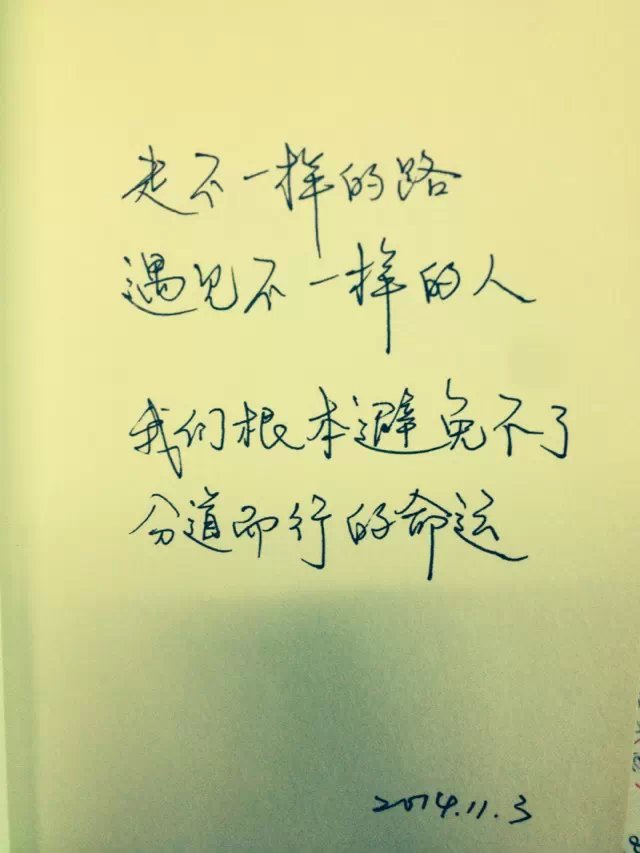 走不一样的路
遇见不一样的人
我们根本避免不了
分道而行的命运
2014.11.3